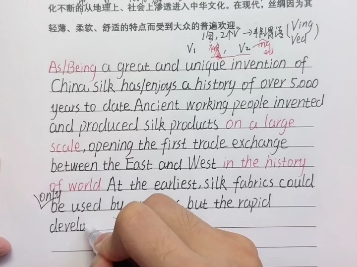 化不断的从地理上、社会上渗透进入中华文化。在现代，丝绸因为其
轻薄、柔软、舒适的特点而受到大众的普遍欢迎。
1句, 2个V → 非谓语 (Ving
Ved)
V₁ V₂
As/Being a great and unique invention of
China, silk has/enjoys a history of over 5000
years to date. Ancient working people invented
and produced silk products on a large
scale, opening the first trade exchange
between the East and West in the history
of world. At the earliest, silk fabrics could
only
be used by but the rapid
develo